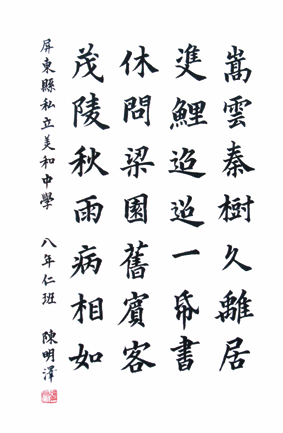 嵩雲秦樹久離居
雙鯉迢迢一帋書
休問梁園舊賓客
茂陵秋雨病相如
屏東縣私立美和中學 八年仁班 陳明澤